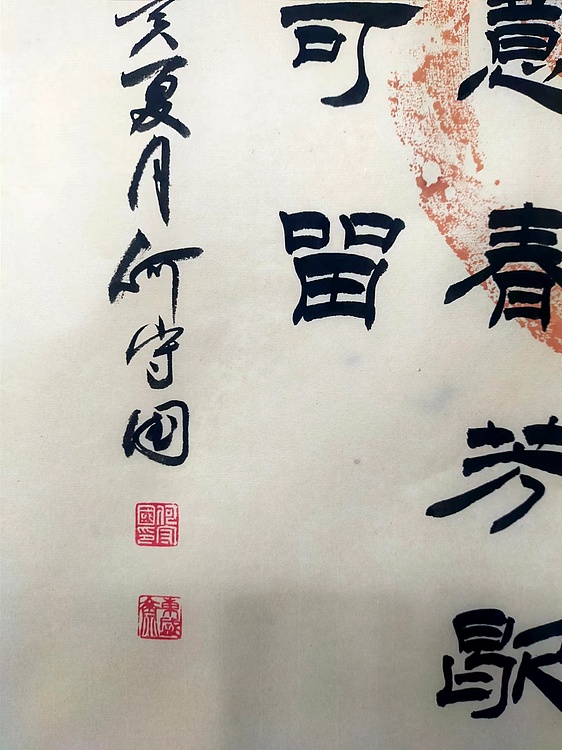 意春芳歇
可留
亥夏月何守国
何守國印